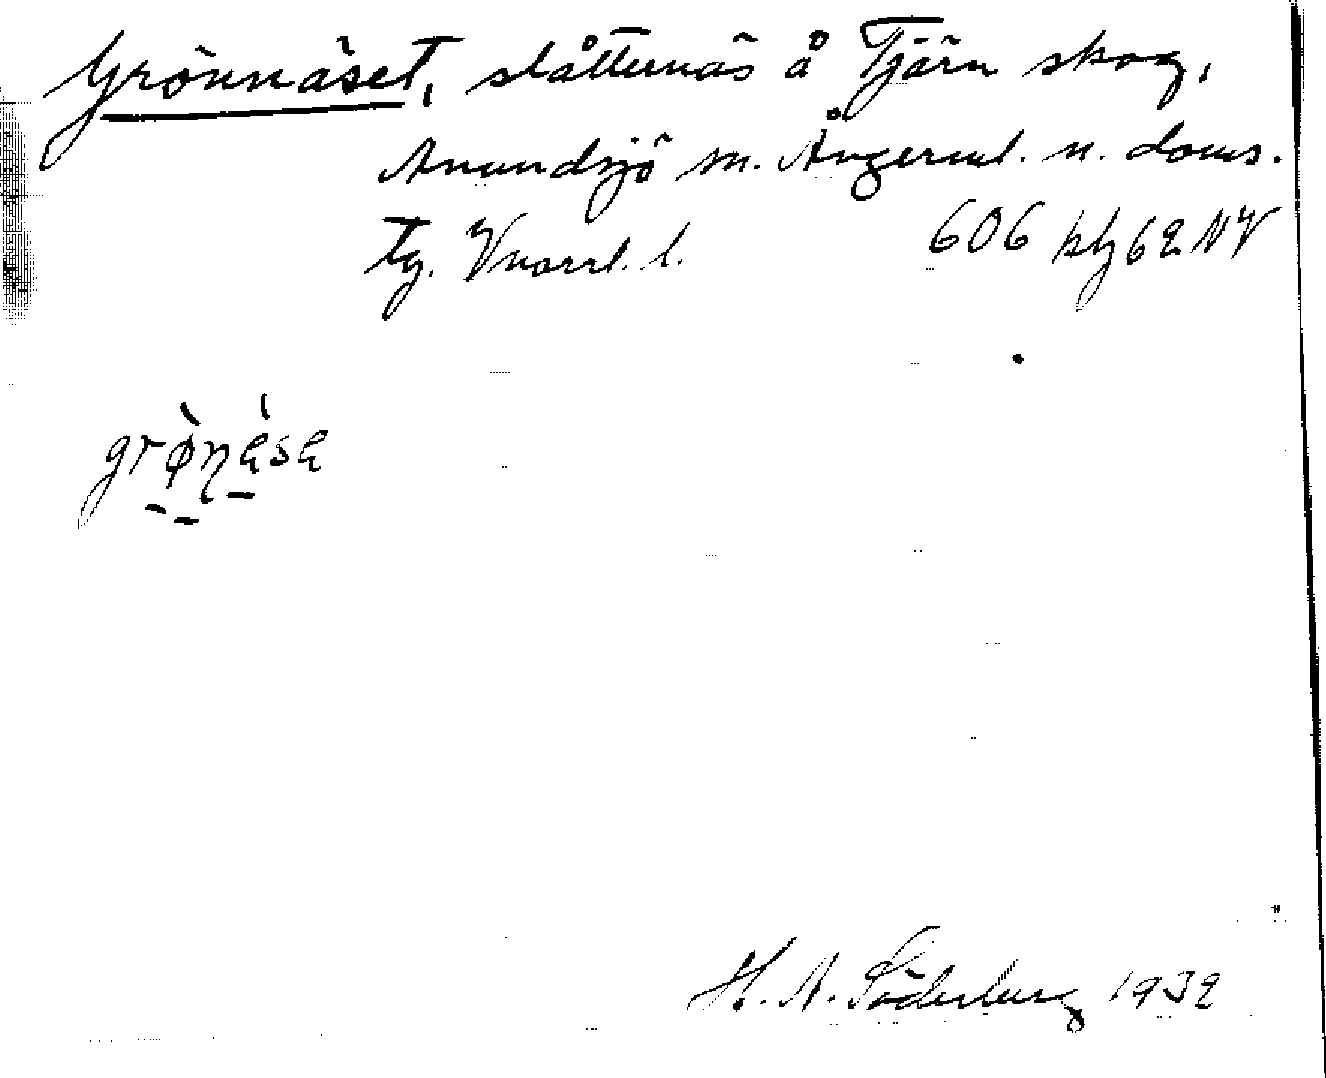 Grönnäset, slåtternäs å Tjärn skog,
Anundsjö sn. Ångerml. n. doms.
tg. Vnorrl. l. 606 kbl 62 NV
grø̀nǽsa
H. A. Söderberg 1932